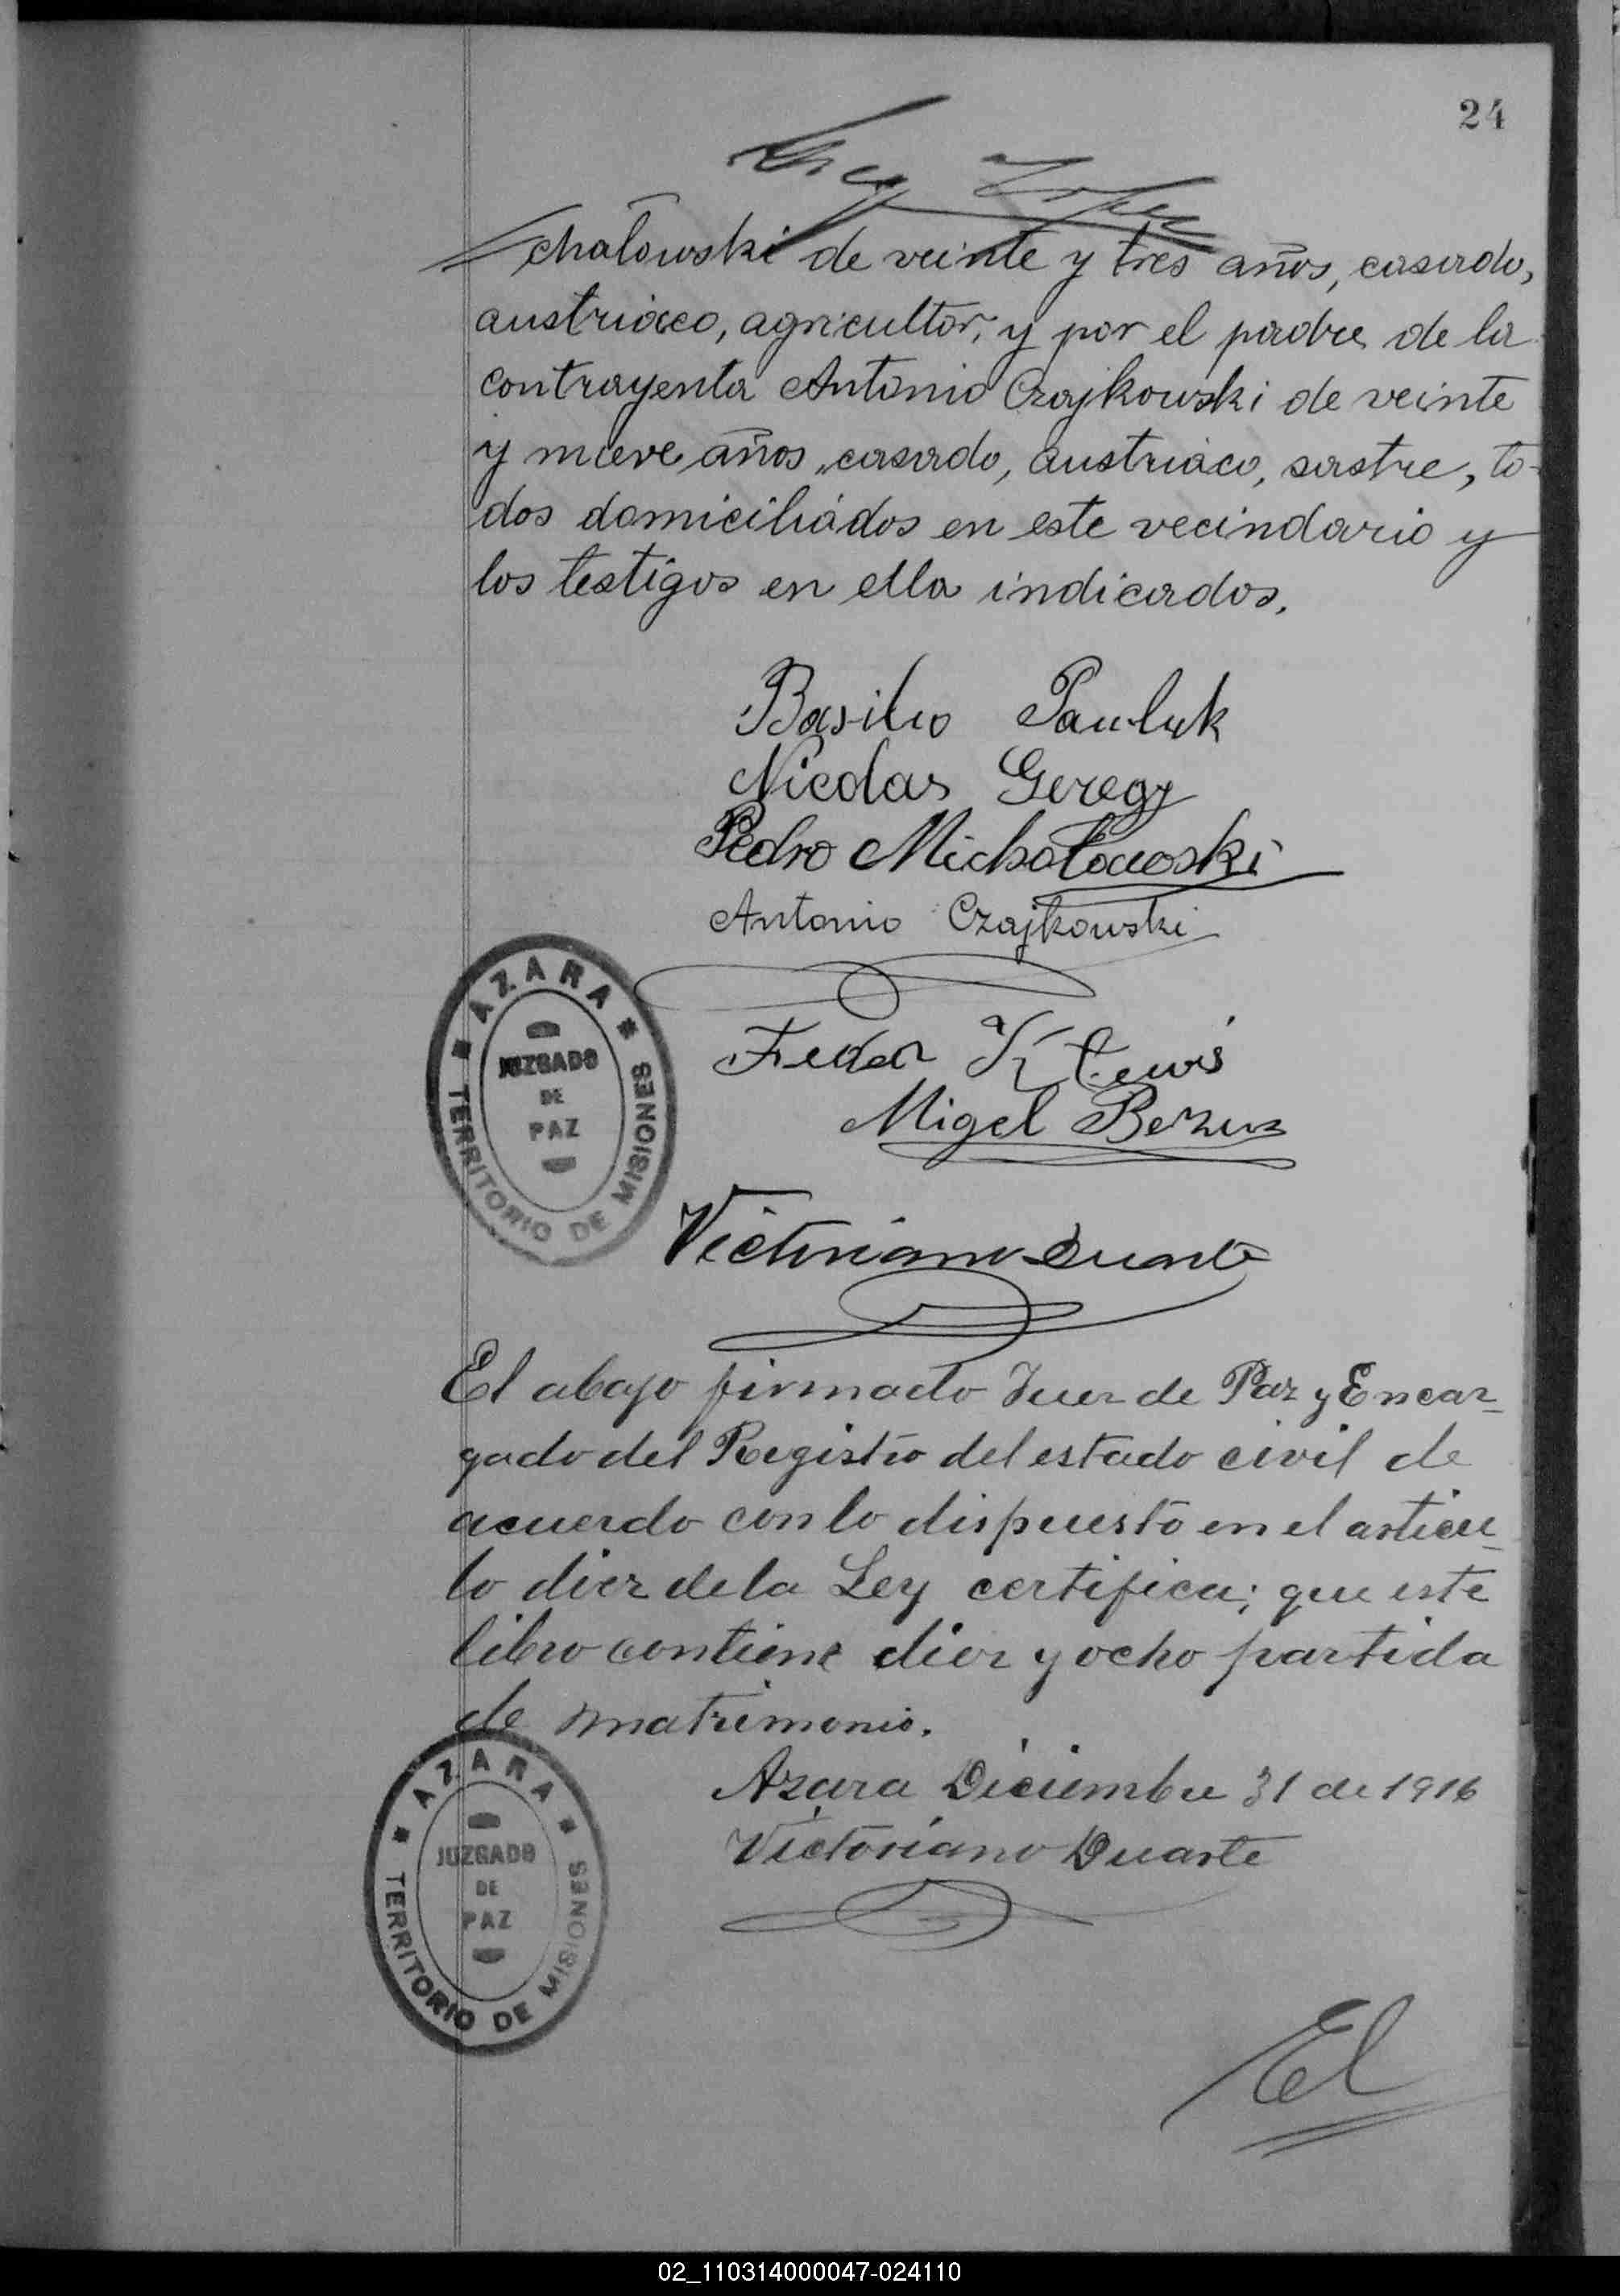 24
chałowski de veinte y tres años, casado,
austriaco, agricultor, y por el padre de la
contrayenta Antonio Czajkowski de veinte
y nueve años, casado, austriaco, sastre, to-
dos domiciliados en este vecindario y
los testigos en ella indicados.
Basilio Pauluk
Nicolas Geregy
Pedro Michałowski
Antonio Czajkowski
AZARA
JUZGADO
DE
PAZ
TERRITORIO DE MISIONES
Fedor
Migel
Victoriano Duarte
El abajo firmado Juez de Paz y Encar-
gado del Registro del estado civil de
acuerdo con lo dispuesto en el articu-
lo diez de la Ley certifica; que este
libro contiene diez y ocho partida
de matrimonio.
Azara Diciembre 31 de 1916
Victoriano Duarte
AZARA
JUZGADO
DE
PAZ
TERRITORIO DE MISIONES
El
02_110314000047-024110